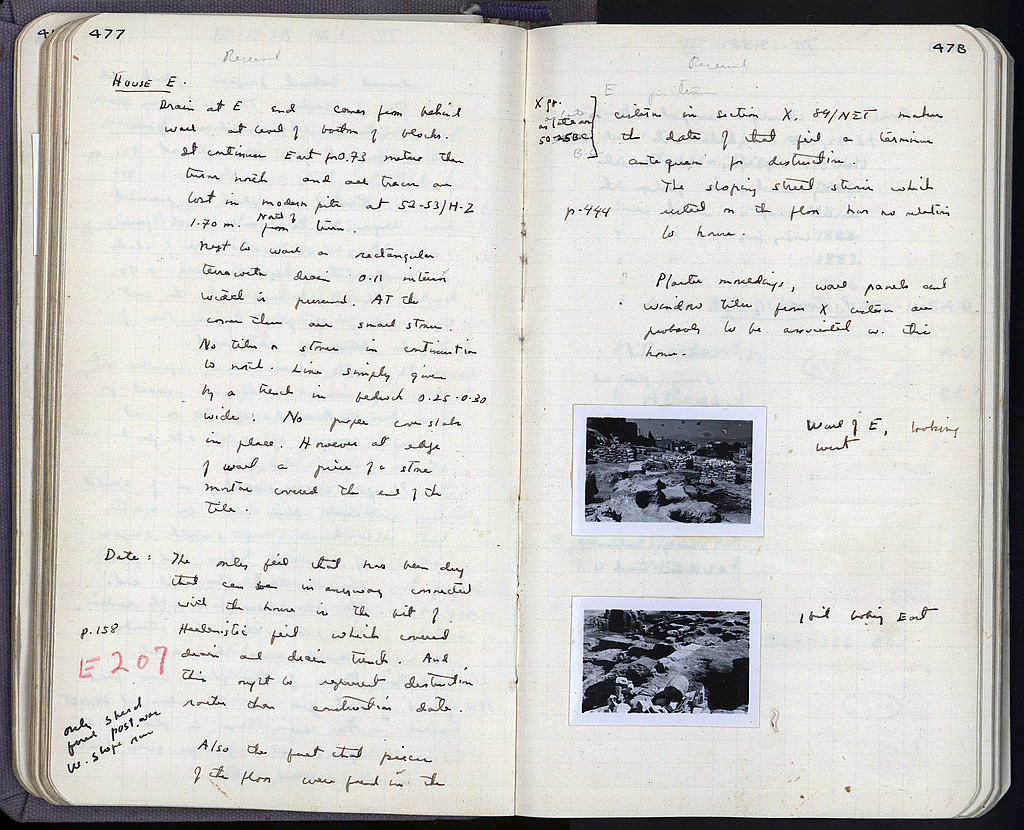 477
HOUSE E.
Drain at E end comes from behind
wall at level of bottom of blocks.
It continues East for 0.73 meters then
turns north and all traces are
lost in modern pits at 52-53/H-Z
1.70 m. North of from turn.
Next to wall a rectangular
terracotta drain 0.11 interior
width is preserved. At the
corner there are small stones.
No tiles or stones in continuation
to north. Line simply given
by a trench in bedrock 0.25-0.30
wide. No proper cover slabs
in place. However at edge
of wall a piece of a stone
mortar covered the end of the
tile.
Date: The only fill that has been dug
that can be in anyway connected
with the house is the bit of
p.158
Hellenistic fill which covered
drain and drain trench. And
E 207
this ought to represent destruction
rather than construction date.
only sherd
found post war
W. slope
Also the fact that pieces
of the floor were found in the
478
E
X gr.
cistern in section X. 54/NET makes
the date of that fill a terminus
ante quem for destruction.
The sloping street strain which
p.444
rested on the floor has no relation
to house.
Plaster mouldings, wall panels and
window tiles from X cistern are
probably to be associated w. this
house.
Wall of E, looking
west
looking East